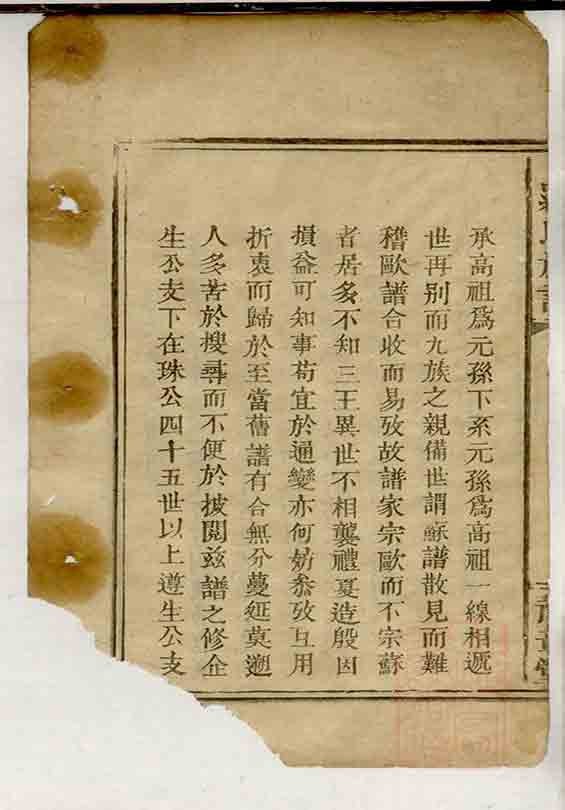 承高祖爲元孫下系元孫爲高祖一線相遞
世再别而九族之親備世謂蘇譜散見而難
稽歐譜合收而易攷故譜家宗歐而不宗蘇
者居多不知三王異世不相襲禮夏造殷因
損益可知事苟宜於通變亦何妨叅攷互用
折衷而歸於至當舊譜有合無分蔓延莫遡
人多苦於搜尋而不便於披閱兹譜之修企
生公支下在珠公四十五世以上遵生公支